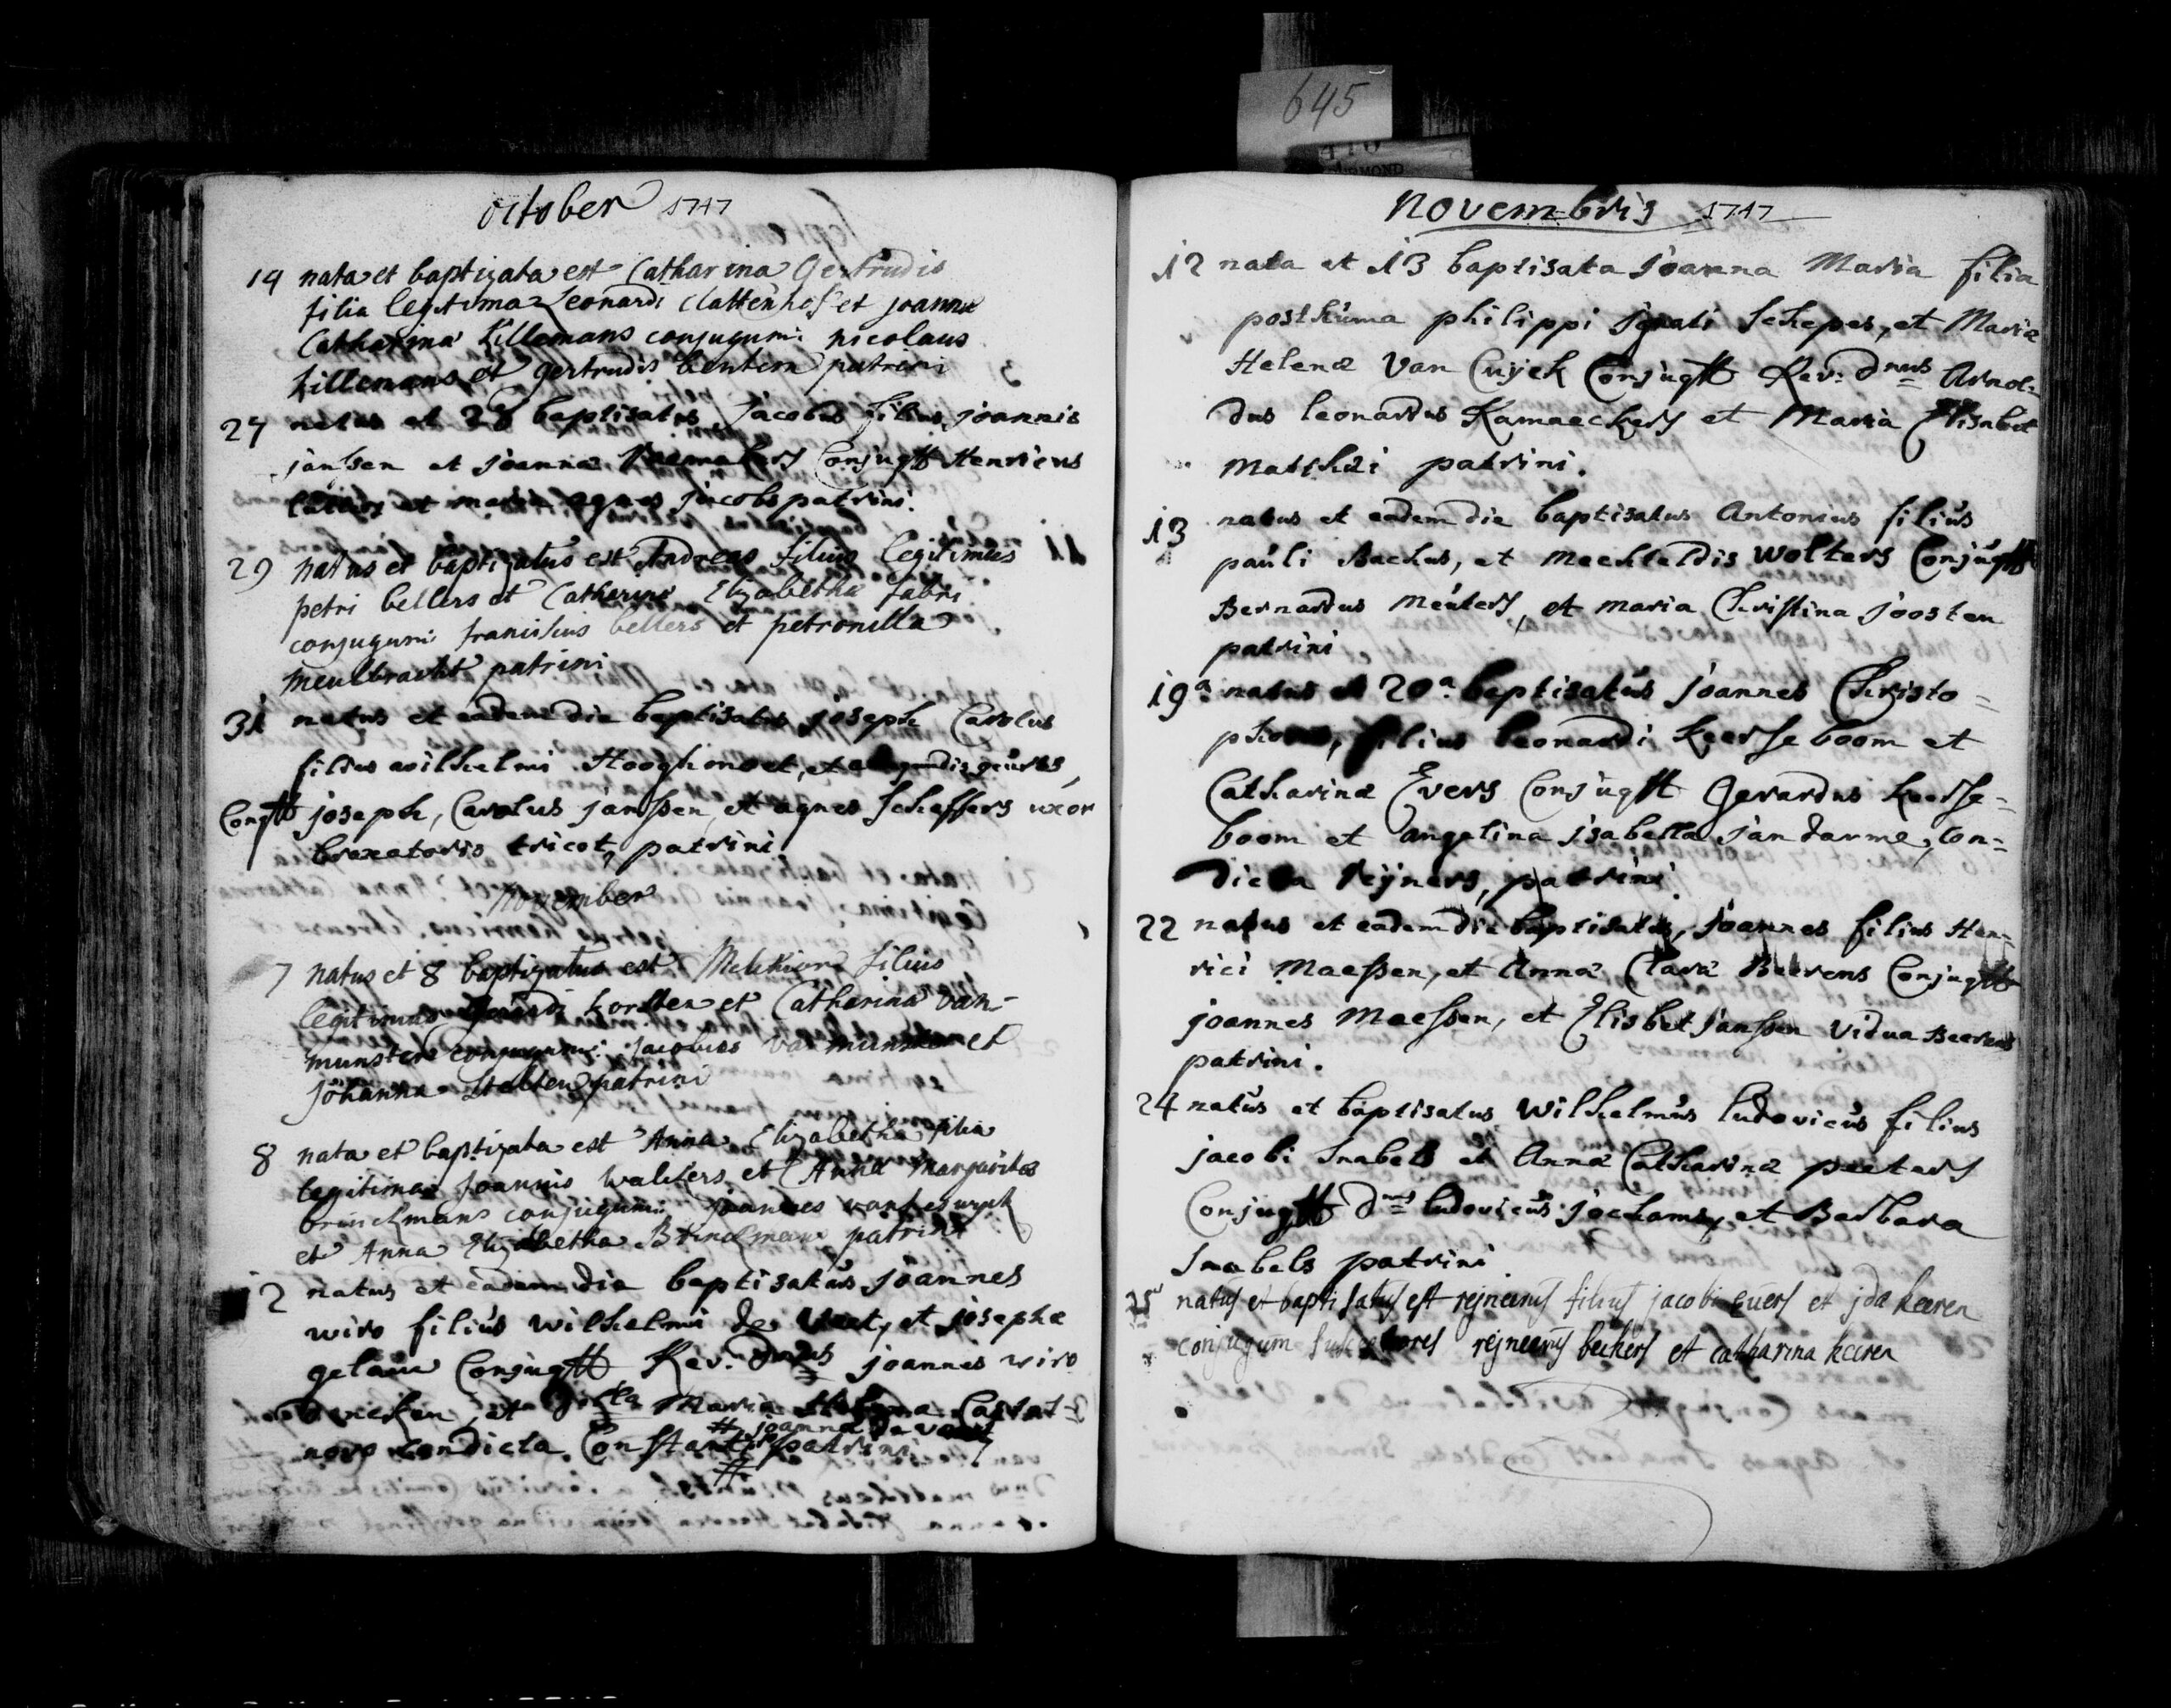 645
RMOND
october 1747
14 nata et baptizata est Catharina Gertrudis
filia legitima Leonardi Clattenhof et joanna
Catharina Killemans conjugum: nicolaus
Killemans et gertrudis bentem patrini
27 natus et 28 baptisatus Jacobus filius joannis
janssen et joanna Conjugtt Henricus
et maria agnes jacobs patrini.
29 natus et baptizatus est Andreas filius legitimus
petri bellers et Catharina Elizabetha fabri
conjugum franciscus bellers et petronella
meulbracht patrini
31 natus et eadem die baptisatus joseph Carolus
filius wilhelmi Hooghonoet, et geurts,
Congtt joseph, Carolus janssen, et agnes Scheffers uxor
braxatoris tricot, patrini
November
7 natus et 8 baptizatus est Melchior filius
legitimus korsten et Catharina van-
munster conjugum: jacobus van munster et
Johanna Stelten patrini
8 nata et baptizata est Anna Elizabetha filia
legitima Joannis walters et Anna margarita
brinckmans conjugum: joannes vanheswyck
et Anna Elizabetha Brinckmans patrini
12 natus et eadem die baptisatus joannes
wiro filius wilhelmi de Vaet, et josepha
gelaiu Conjugtt Rev. dnus joannes wiro
et Maria Helena Casat-
novo condicta Constant patrini
# joanna de
#
Novembris 1747
12 nata et 13 baptisata joanna Maria filia
posthuma philippi ignati Schepes, et Maria
Helena Van Cuijck Conjugtt Rev: dnus Arnol:
dus leonardus Ramaeckers et Maria Elisabet
Matthaei patrini.
13 natus et eadem die baptisatus Antonius filius
pauli Backus, et Mechteldis wolters Conjugtt
Bernardus Meuters, et maria Christina joosten
patrini
19a natus et 20a baptisatus joannes Christo=
phorus, filius leonardi Keersseboom et
Catharina Evers Conjugtt Gerardus keersse=
boom et angelina isabella jandarme, con=
dicta Reijners, patrini.
22 natus et eadem die baptisatus, joannes filius Hen=
rici Maessen, et Anna Clara Beerens Conjugtt
joannes Maessen, et Elisbet janssen vidua Beerens
patrini.
24 natus et baptisatus wilhelmus ludovicus filius
jacobi Snabels et Anna Catharina peeters
Conjugtt dnus ludovicus jochams, et Barbara
Snabels patrini
25 natus et baptisatus est rejneerus filius jacobi Euers et jda keeren
conjugum susceptores rejneerus beckers et catharina keeren